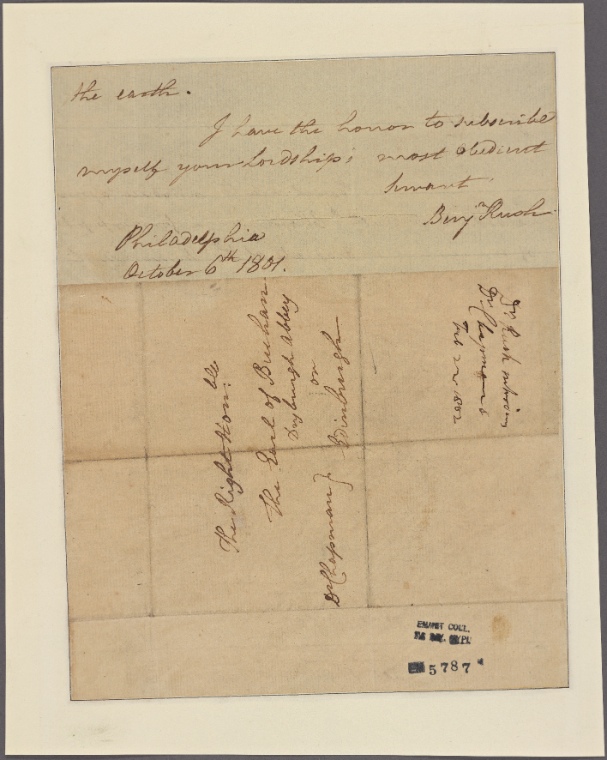 the earth.
I have the honor to subscribe
myself your Lordship's most obedient
servant.
Benjn Rush
Philadelphia
October 6th 1801.
The Right Honble
The Earl of Buchan
Dryburgh Abbey
on
Edinburgh
Dr Chapman }
Dr. Rush
Dr. Chapman
Feb 1802
EMMET COLL.
5787